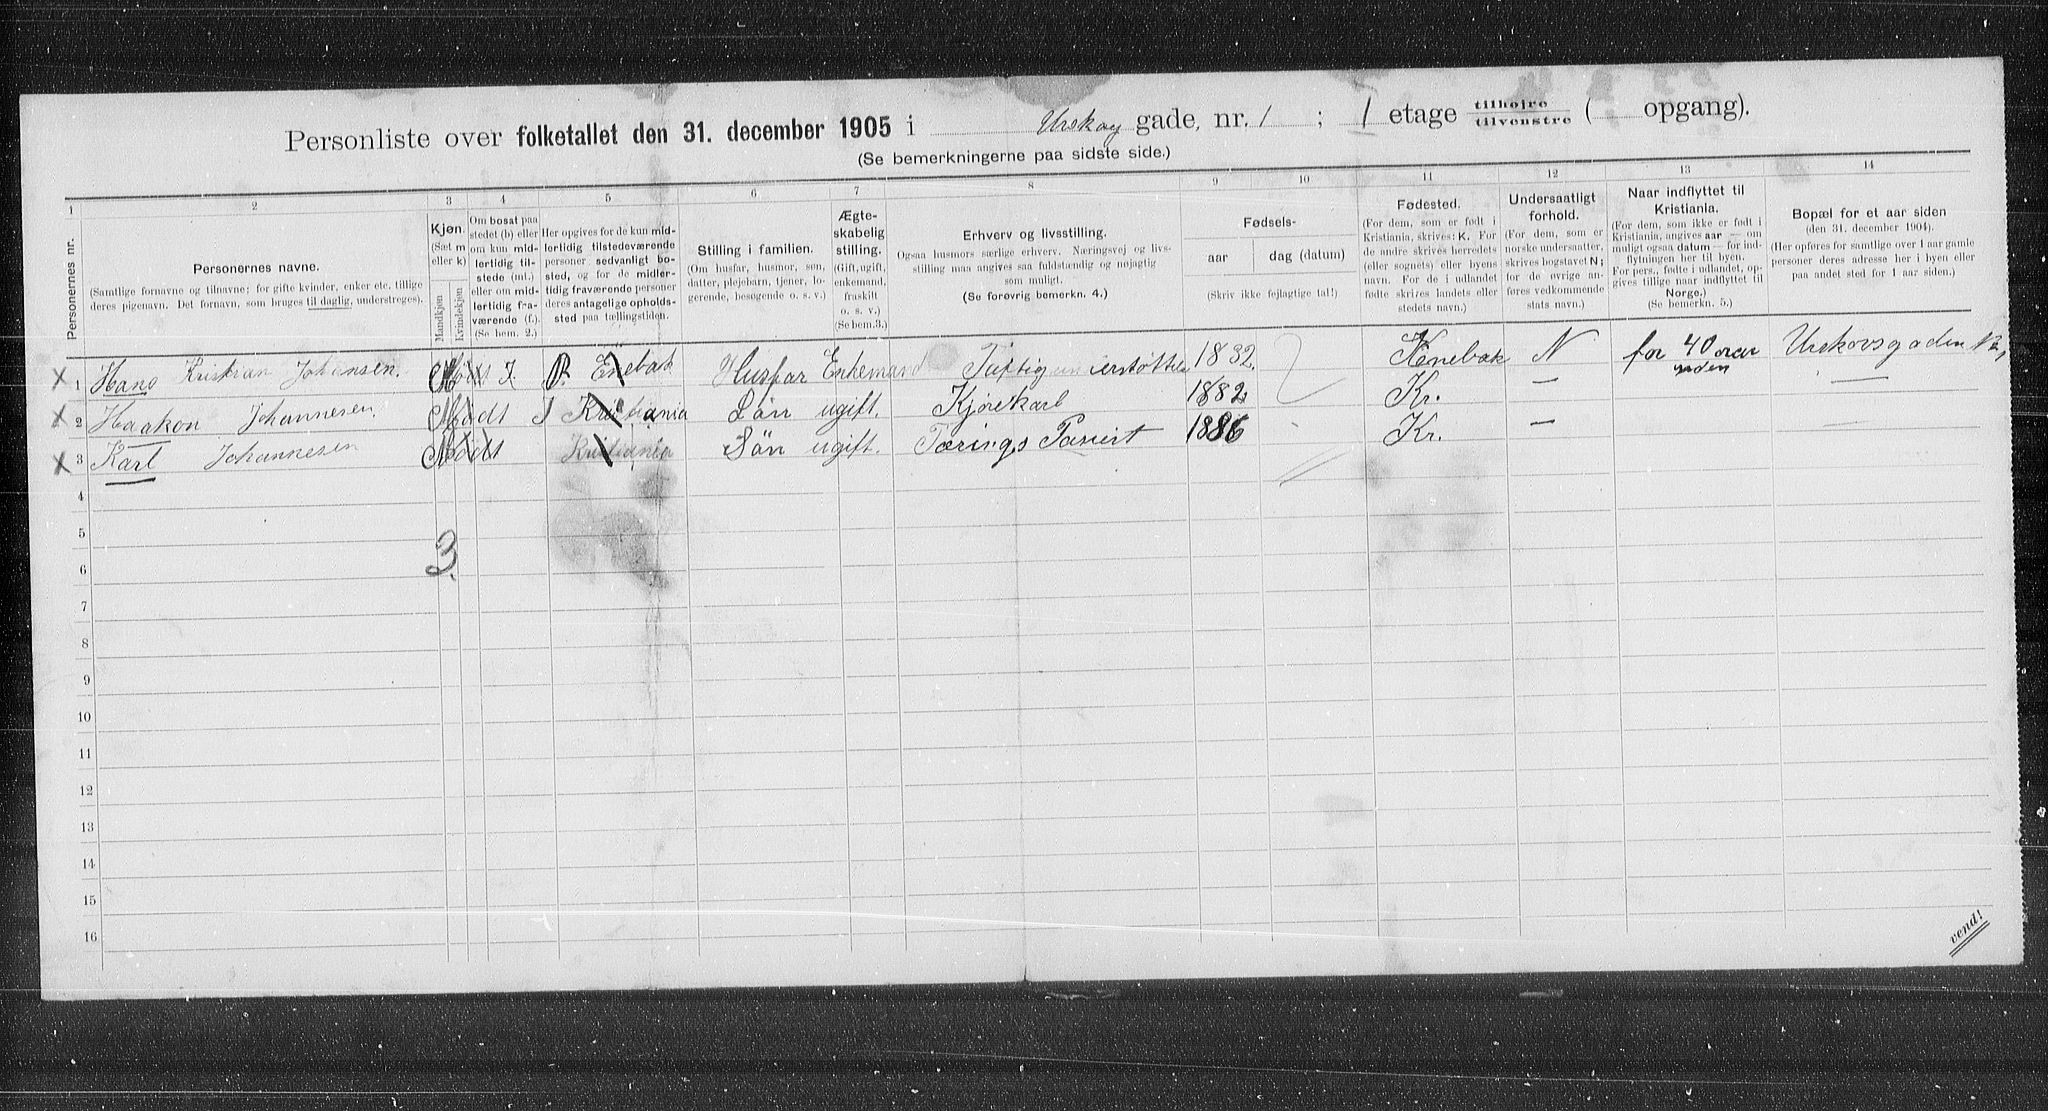 Personliste over folketallet den 31. december 1905 i Urskog gade, nr. 1 ; 1 etage tilhøjre tilvenstre ( opgang).
(Se bemerkningerne paa sidste side.)
1 2 3 4 5 6 7 8 9 10 11 12 13 14
Personernes nr.
Personernes navne.
(Samtlige fornavne og tilnavne; for gifte kvinder, enker etc. tillige
deres pigenavn. Det fornavn, som bruges til daglig, understreges).
Kjøn.
(Sæt m
eller k)
Mandkjøn
Kvindekjøn
Om bosat paa
stedet (b) eller
om kun mid-
lertidig til-
stede (mt.)
eller om mid-
lertidig fra-
værende (f.).
(Se bem. 2.)
Her opgives for de kun mid-
lertidig tilstedeværende
personer sedvanligt bo-
sted, og for de midler-
tidig fraværende personer
deres antagelige opholds-
sted paa tællingstiden.
Stilling i familien.
(Om husfar, husmor, søn,
datter, plejebarn, tjener, lo-
gerende, besøgende o. s. v.)
Ægte-
skabelig
stilling.
(Gift, ugift,
enkemand,
fraskilt
o. s. v.)
(Se bem.3.)
Erhverv og livsstilling.
Ogsaa husmors særlige erhverv. Næringsvej og livs-
stilling maa angives saa fuldstændig og nøjagtig
som muligt.
(Se forøvrig bemerkn. 4.)
Fødsels-
aar dag (datum)
(Skriv ikke fejlagtige tal!)
Fødested.
(For dem, som er født i
Kristiania, skrives: K. For
de andre skrives herredets
(eller sognets) eller byens
navn. For de i udlandet
fødte skrives landets eller
stedets navn.)
Undersaatligt
forhold.
(For dem, som er
norske undersaatter,
skrives bogstavet N;
for de øvrige an-
føres vedkommende
stats navn.)
Naar indflyttet til
Kristiania.
(For dem, som ikke er født i
Kristiania, angives aar — om
muligt ogsaa datum — for ind-
flytningen her til byen.
For pers., fødte i udlandet, op-
gives tillige naar indflyttet til
Norge.)
(Se bemerkn. 5.)
Bopæl for et aar siden
(den 31. december 1904).
(Her opføres for samtlige over 1 aar gamle
personer deres adresse her i byen eller
paa andet sted for 1 aar siden.)
x 1 Hans Kristian Johansen. Enebak Husfar Enkemand 1832. Enebak N for 40 aar siden Urskovsgaden
x 2 Haakon Johannesen Kristiania Sön ugift. Kjörekarl 1882 Kr. —
x 3 Karl Johannesen Kristiania Sön ugift. Tærings Pasient 1886 Kr. —
4
5
3.
6
7
8
9
10
11
12
13
14
15
16
vend!